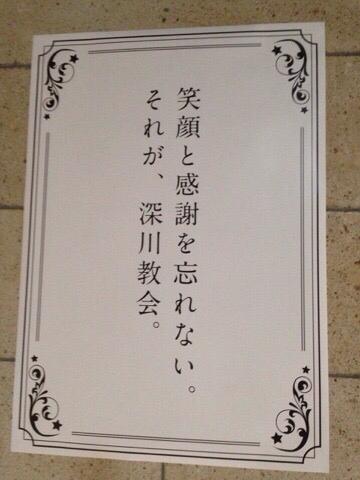 笑顔と感謝を忘れない。
それが、深川教会。